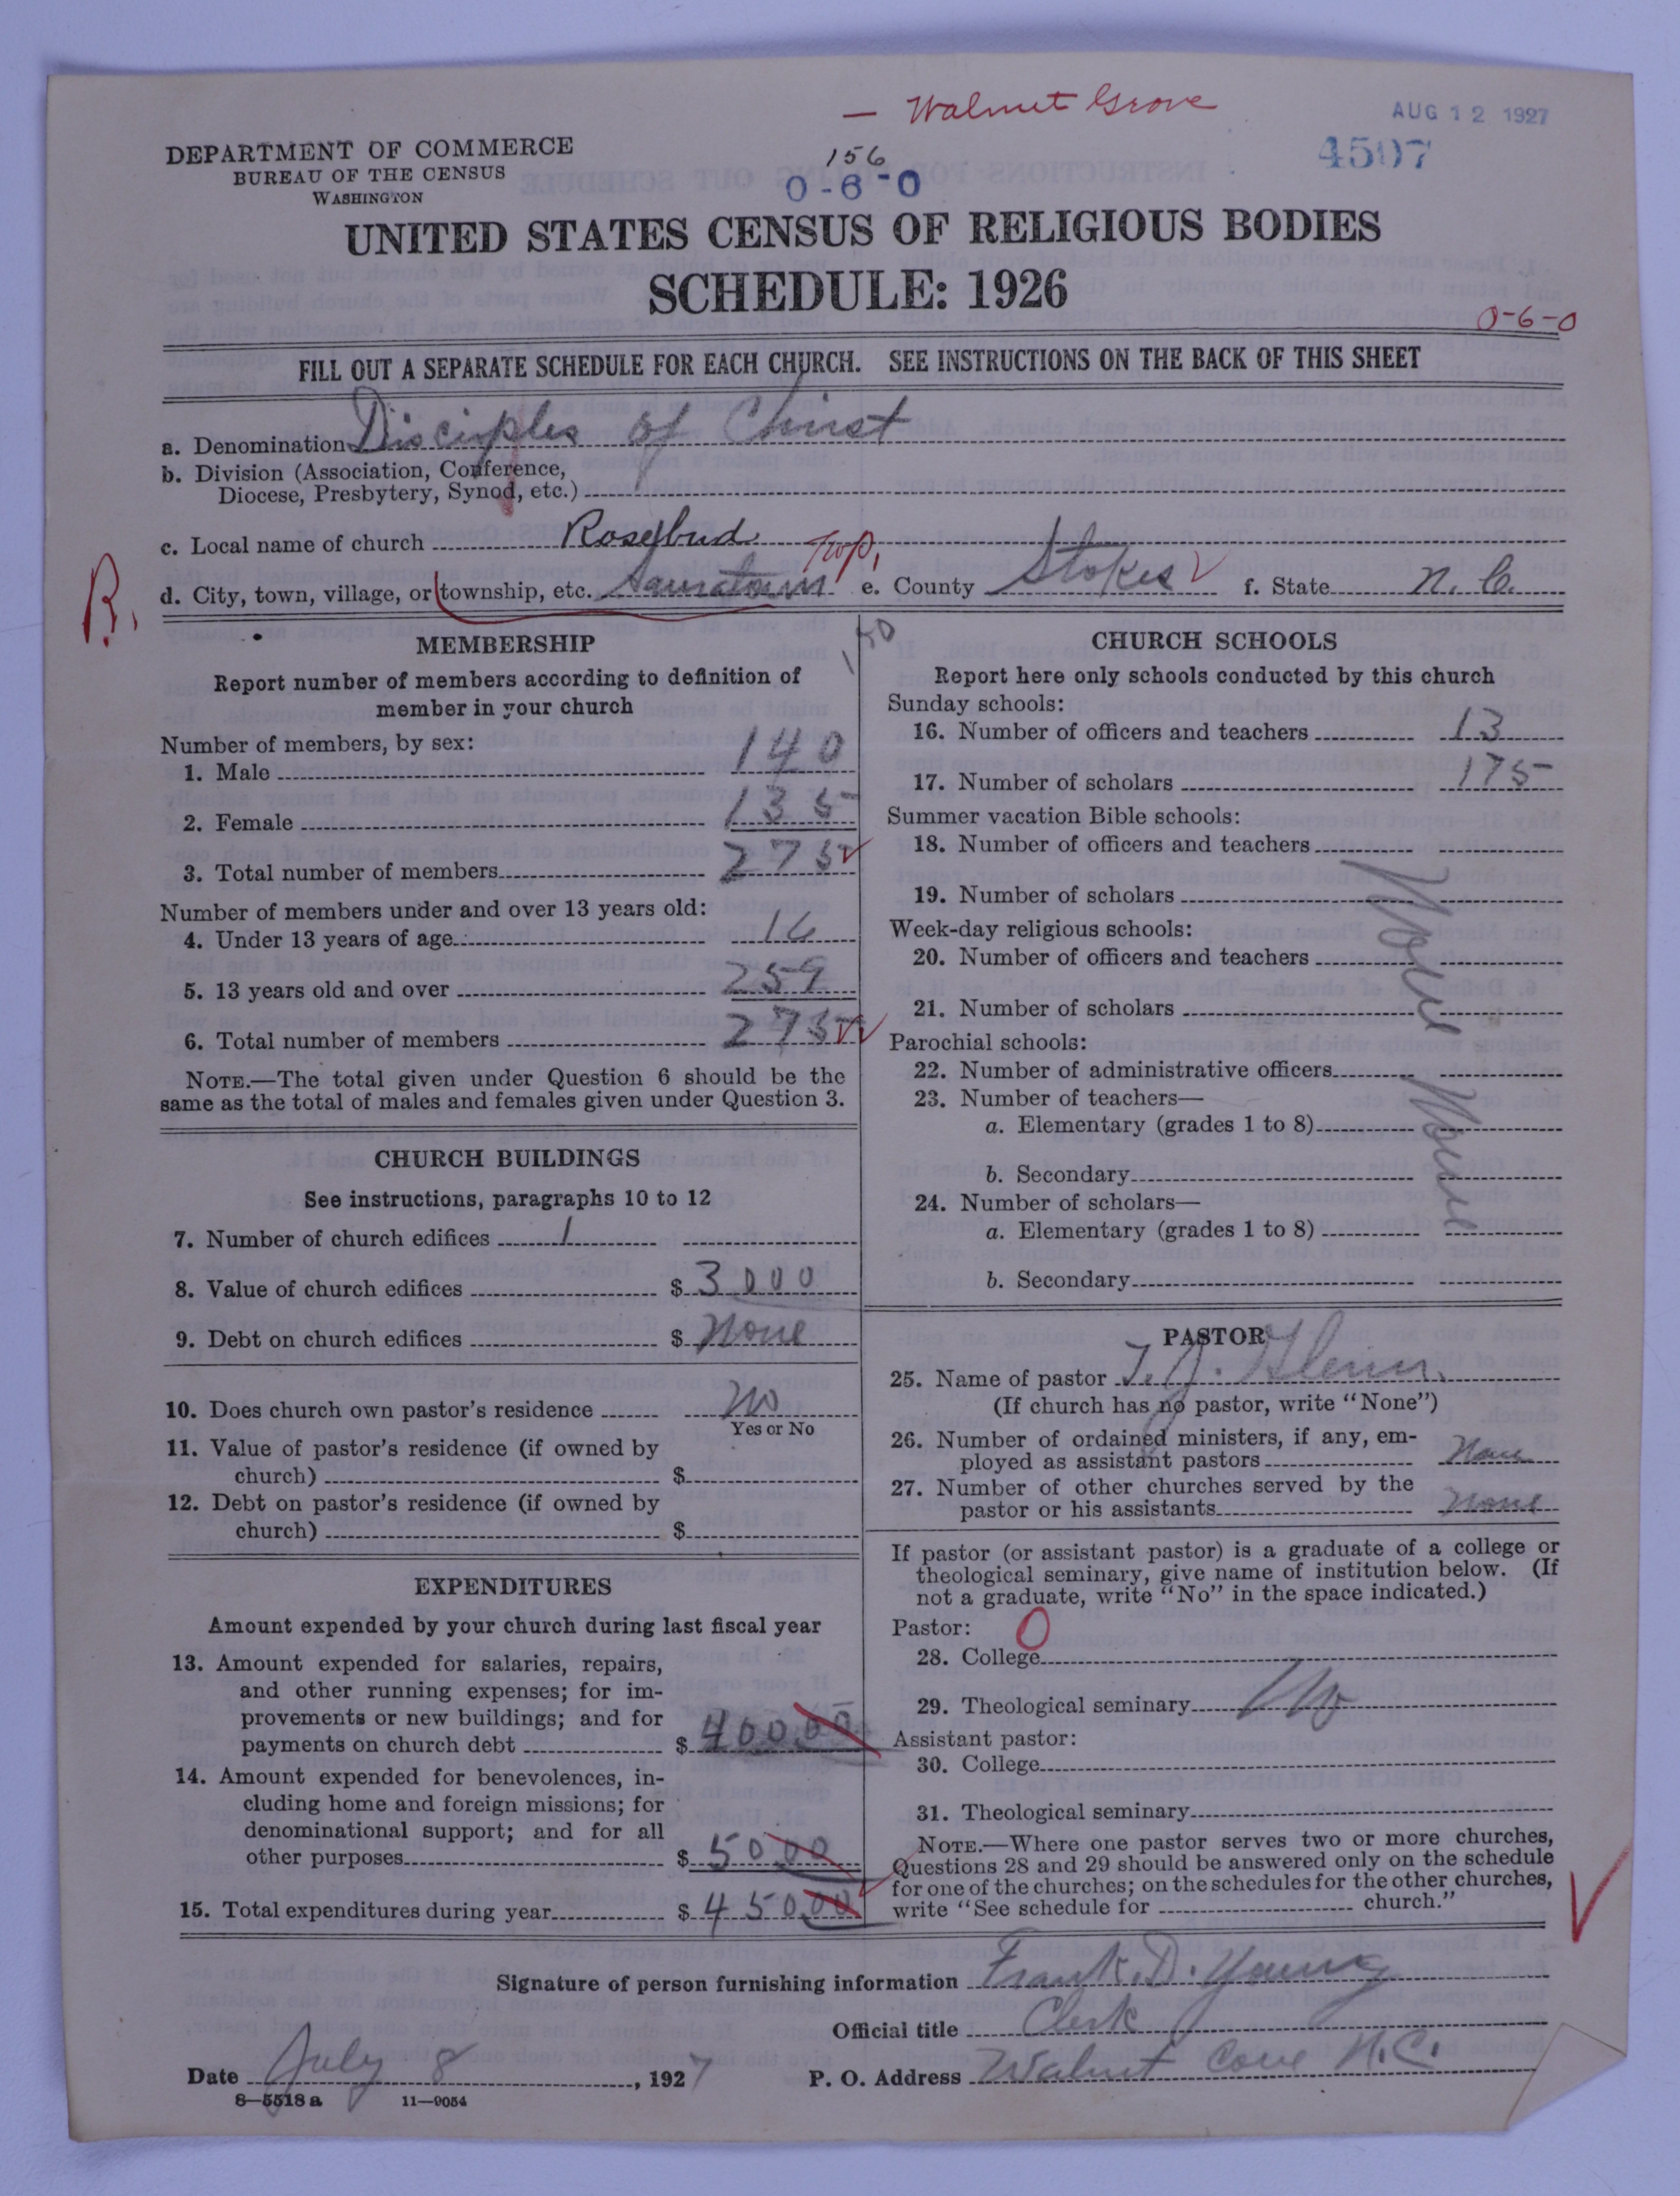 — Walnut Grove
AUG 12 1927
4507
DEPARTMENT OF COMMERCE
BUREAU OF THE CENSUS
WASHINGTON
156
0-6-0
UNITED STATES CENSUS OF RELIGIOUS BODIES
SCHEDULE: 1926
0-6-0
FILL OUT A SEPARATE SCHEDULE FOR EACH CHURCH. SEE INSTRUCTIONS ON THE BACK OF THIS SHEET
a. Denomination Disciples of Christ
b. Division (Association, Conference,
Diocese, Presbytery, Synod, etc.)
c. Local name of church Rosebud
Twp.
B.
d. City, town, village, or township, etc. Sauratown e. County Stokes f. State N. C.
MEMBERSHIP
Report number of members according to definition of
member in your church
Number of members, by sex:
1. Male 140
2. Female 135
3. Total number of members 275
Number of members under and over 13 years old:
4. Under 13 years of age 16
5. 13 years old and over 259
6. Total number of members 275
NOTE.—The total given under Question 6 should be the
same as the total of males and females given under Question 3.
CHURCH BUILDINGS
See instructions, paragraphs 10 to 12
7. Number of church edifices 1
8. Value of church edifices $ 3000
9. Debt on church edifices $ None
10. Does church own pastor's residence No
Yes or No
11. Value of pastor's residence (if owned by
church) $
12. Debt on pastor's residence (if owned by
church) $
EXPENDITURES
Amount expended by your church during last fiscal year
13. Amount expended for salaries, repairs,
and other running expenses; for im-
provements or new buildings; and for
payments on church debt $ 400.00
14. Amount expended for benevolences, in-
cluding home and foreign missions; for
denominational support; and for all
other purposes $ 50.00
15. Total expenditures during year $ 450.00
CHURCH SCHOOLS
Report here only schools conducted by this church
Sunday schools:
16. Number of officers and teachers 13
17. Number of scholars 175
Summer vacation Bible schools:
18. Number of officers and teachers
19. Number of scholars
None
Week-day religious schools:
20. Number of officers and teachers
21. Number of scholars
Parochial schools:
22. Number of administrative officers
23. Number of teachers—
a. Elementary (grades 1 to 8)
None
b. Secondary
24. Number of scholars—
a. Elementary (grades 1 to 8)
b. Secondary
PASTOR
25. Name of pastor T. J. Glenn.
(If church has no pastor, write "None")
26. Number of ordained ministers, if any, em-
ployed as assistant pastors None
27. Number of other churches served by the
pastor or his assistants None
If pastor (or assistant pastor) is a graduate of a college or
theological seminary, give name of institution below. (If
not a graduate, write "No" in the space indicated.)
Pastor: 0
28. College
29. Theological seminary No
Assistant pastor:
30. College
31. Theological seminary
NOTE.—Where one pastor serves two or more churches,
Questions 28 and 29 should be answered only on the schedule
for one of the churches; on the schedules for the other churches,
write "See schedule for church."
Signature of person furnishing information Frank. D. Young
Official title Clerk
Date July 8, 1927 P. O. Address Walnut Cove N.C.
8—5518 a 11—9054